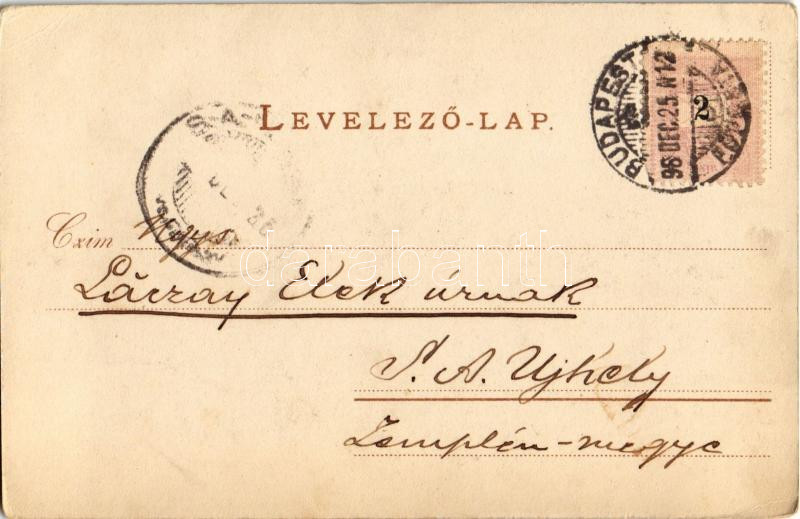 LEVELEZŐ-LAP.
BUDAPEST
96 DEC.25 N12
FŐPOSTA
2
Czim Ngys
Láczay Elek úrnak
S. A. Ujhely
Zemplén-megye
darabanth